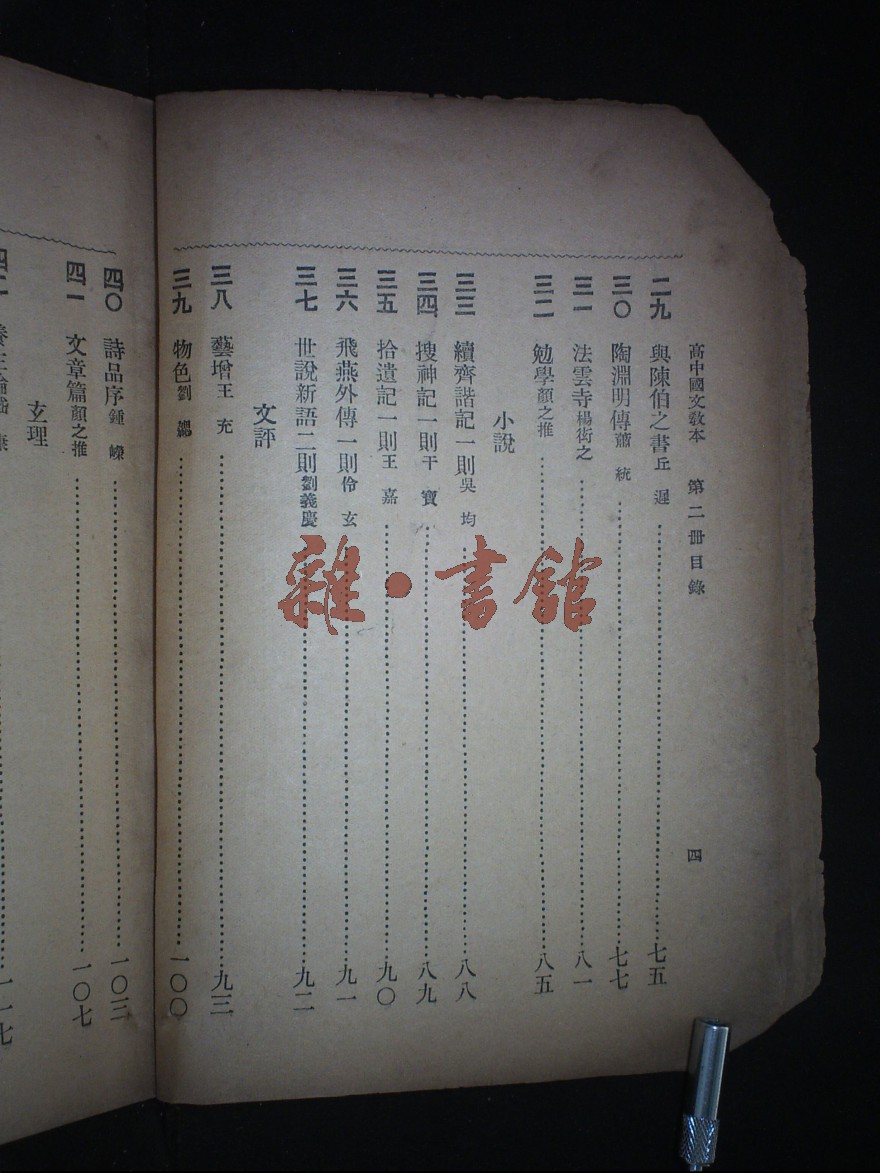 高中國文敎本 第二册目錄 四
二九 與陳伯之書 丘遲 七五
三〇 陶淵明傳 蕭統 七七
三一 法雲寺 楊衒之 八一
三二 勉學 顏之推 八五
小說
三三 續齊諧記一則 吳均 八八
三四 搜神記一則 干寶 八九
三五 拾遺記一則 王嘉 九〇
三六 飛燕外傳一則 伶玄 九一
三七 世說新語二則 劉義慶 九二
文評
三八 藝增 王充 九三
三九 物色 劉勰 一〇〇
四〇 詩品序 鍾嶸 一〇三
四一 文章篇 顏之推 一〇七
玄理
一一七
雜·書館